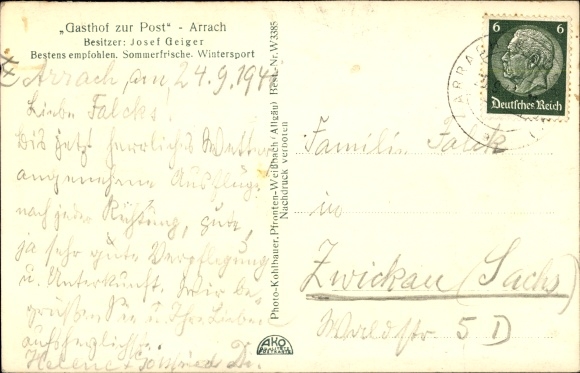 „Gasthof zur Post“ - Arrach
Besitzer: Josef Geiger
Bestens empfohlen. Sommerfrische. Wintersport
Arrach, am 24.9.194
Liebe Falcks!
Bis jetzt herrliches Wetter
angenehme Ausflüge
nach jeder Richtung, gute,
ja sehr gute Verpflegung
u. Unterkunft. Wir be-
grüßen Sie u. Ihre Lieben
aufs herzlichste
Helene + Gottfried
Photo-Kohlbauer, Pfronten-Weißbach (Allgäu) Best.-Nr. W3385
Nachdruck verboten
AKO
6 6
Deutsches Reich
ARRACH
Familie Falck
in
Zwickau (Sachs)
Waldstr 5 D